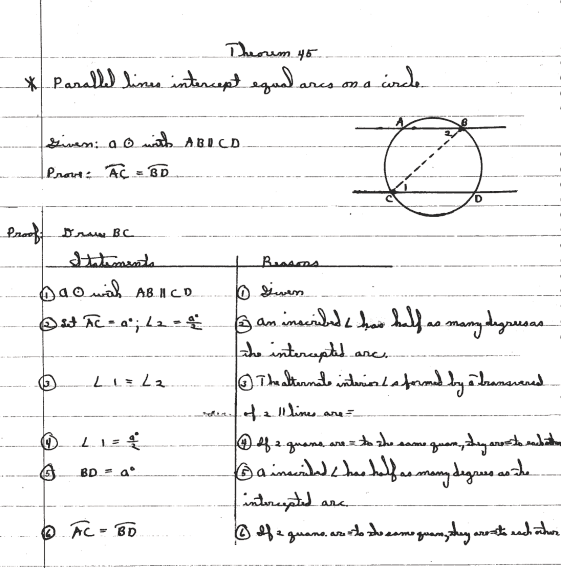 Theorem 45
* Parallel lines intercept equal arcs on a circle.
Given: a ⊙ with AB ∥ CD
Prove: A͡C = B͡D
A B
2
1
C D
Proof: Draw BC
Statements Reasons
① a ⊙ with AB ∥ CD ① Given
② Let A͡C = a°; ∠2 = a°/2 ② an inscribed ∠ has half as many degrees as
the intercepted arc.
③ ∠1 = ∠2 ③ The alternate interior ∠s formed by a transversal
of 2 ∥ lines are =
④ ∠1 = a°/2 ④ If 2 quans. are = to the same quan., they are = to each other
⑤ BD = a° ⑤ a inscribed ∠ has half as many degrees as the
intercepted arc.
⑥ A͡C = B͡D ⑥ If 2 quans. are = to the same quan., they are = to each other